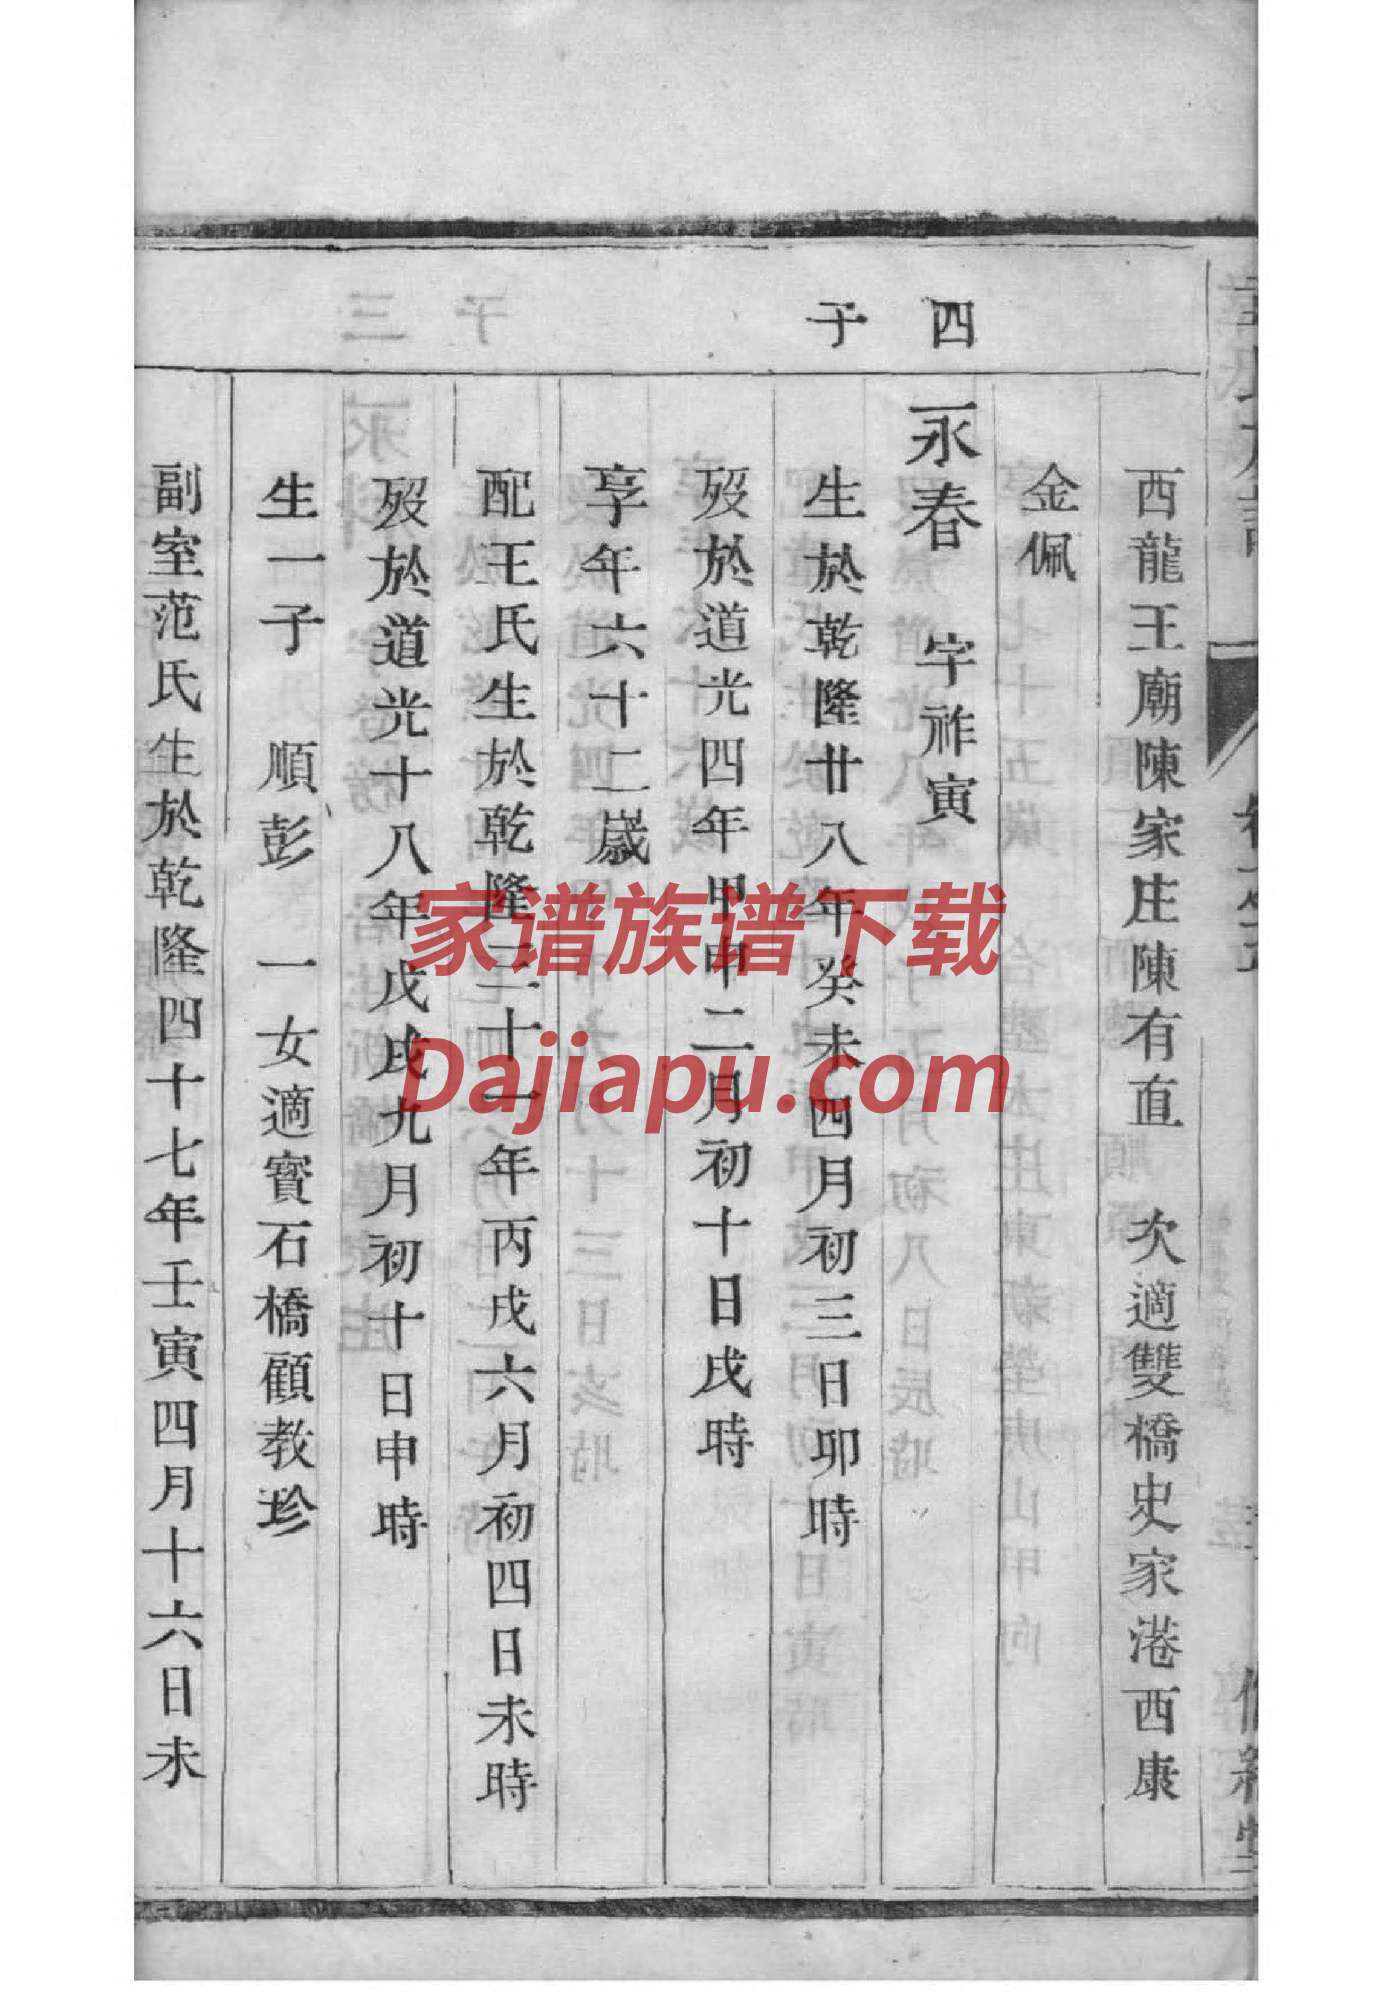 西龍王廟陳家庄陳有直　次適雙橋史家港西康
金佩
四　永春　字祚寅
子　生於乾隆廿八年癸未四月初三日卯時
歿於道光四年甲申二月初十日戌時
享年六十二歲
配王氏生於乾隆三十一年丙戌六月初四日未時
歿於道光十八年戊戌九月初十日申時
生一子　順彭　一女適寳石橋顧教珍
副室范氏生於乾隆四十七年壬寅四月十六日未
家谱族谱下载
Dajiapu.com